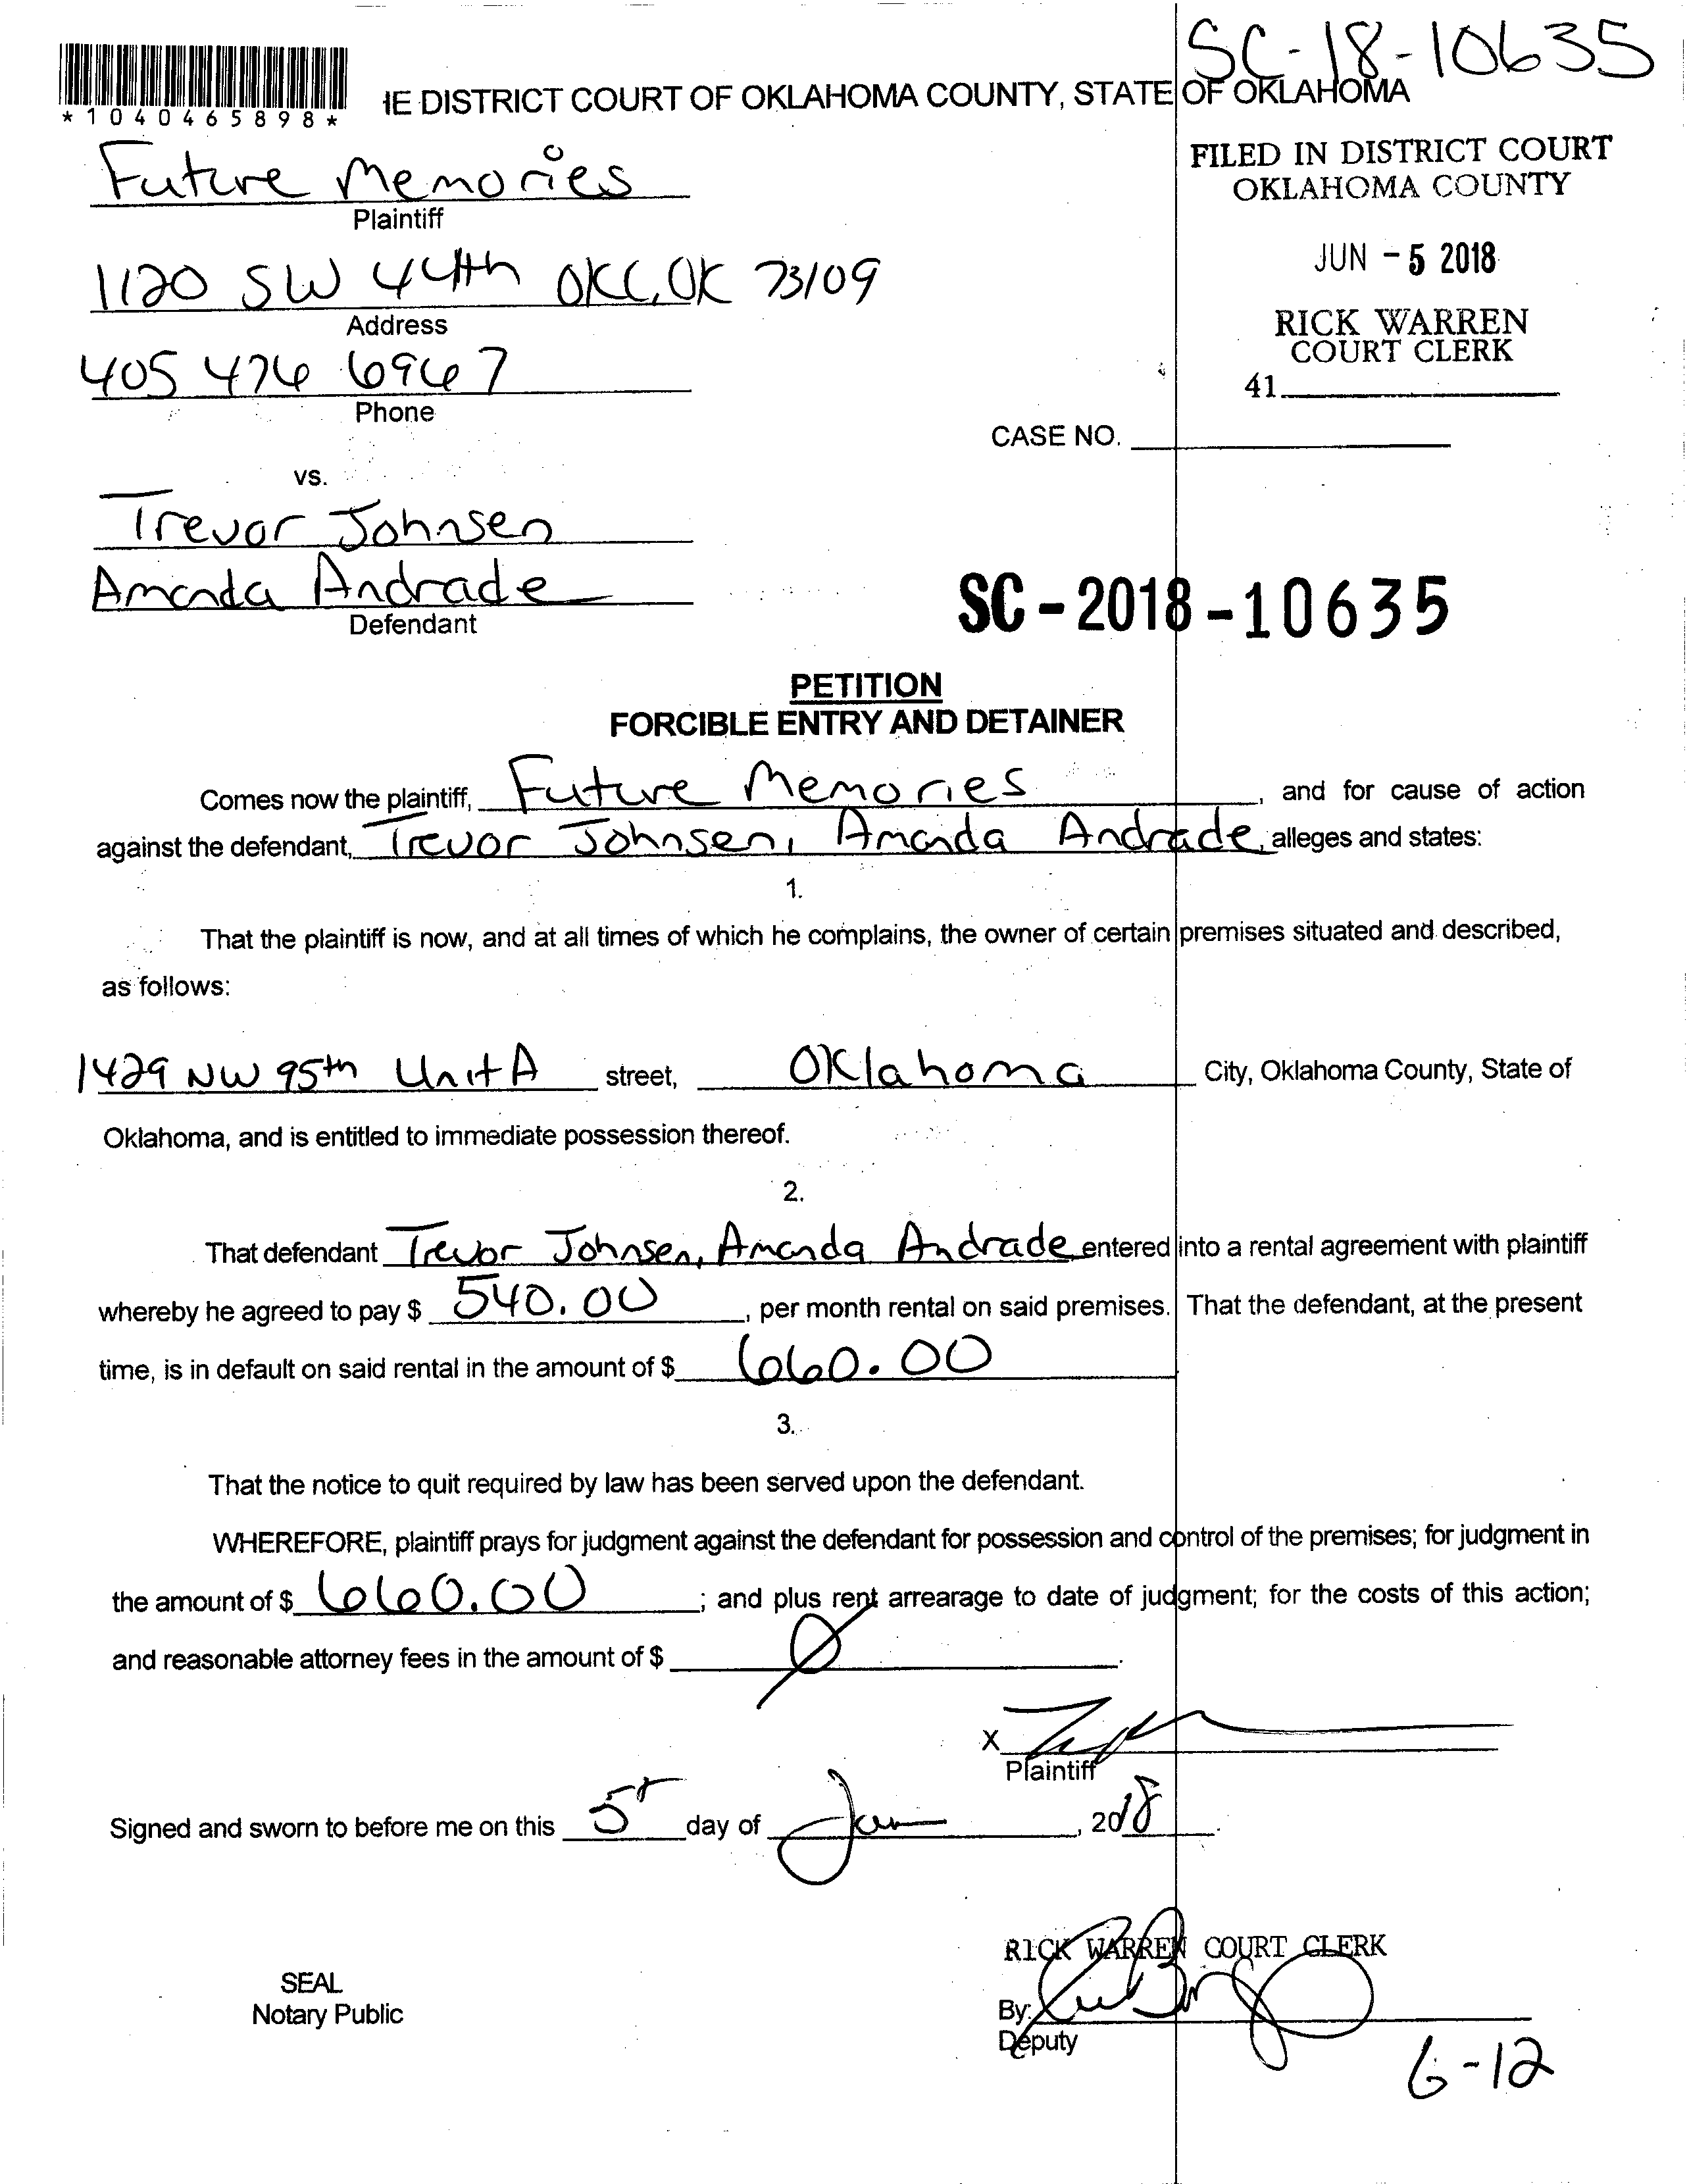 SC-18-10635
*1040465898*
IE DISTRICT COURT OF OKLAHOMA COUNTY, STATE OF OKLAHOMA
FILED IN DISTRICT COURT
OKLAHOMA COUNTY
Future Memories
Plaintiff
JUN - 5 2018
1120 SW 44th OKC, OK 73109
Address
RICK WARREN
COURT CLERK
41
405 476 6967
Phone
CASE NO.
vs.
Trevor Johnsen
Amanda Andrade
Defendant
SC - 2018 - 10635
PETITION
FORCIBLE ENTRY AND DETAINER
Comes now the plaintiff, Future Memories, and for cause of action
against the defendant, Trevor Johnsen, Amanda Andrade, alleges and states:
1.
That the plaintiff is now, and at all times of which he complains, the owner of certain premises situated and described,
as follows:
1429 NW 95th Unit A street, Oklahoma City, Oklahoma County, State of
Oklahoma, and is entitled to immediate possession thereof.
2.
That defendant Trevor Johnsen, Amanda Andrade entered into a rental agreement with plaintiff
whereby he agreed to pay $ 540.00, per month rental on said premises. That the defendant, at the present
time, is in default on said rental in the amount of $ 660.00
3.
That the notice to quit required by law has been served upon the defendant.
WHEREFORE, plaintiff prays for judgment against the defendant for possession and control of the premises; for judgment in
the amount of $ 660.00; and plus rent arrearage to date of judgment; for the costs of this action;
and reasonable attorney fees in the amount of $ Ø.
X
Plaintiff
Signed and sworn to before me on this 5 day of Jun, 2018.
RICK WARREN COURT CLERK
SEAL
Notary Public
By:
Deputy
6-12